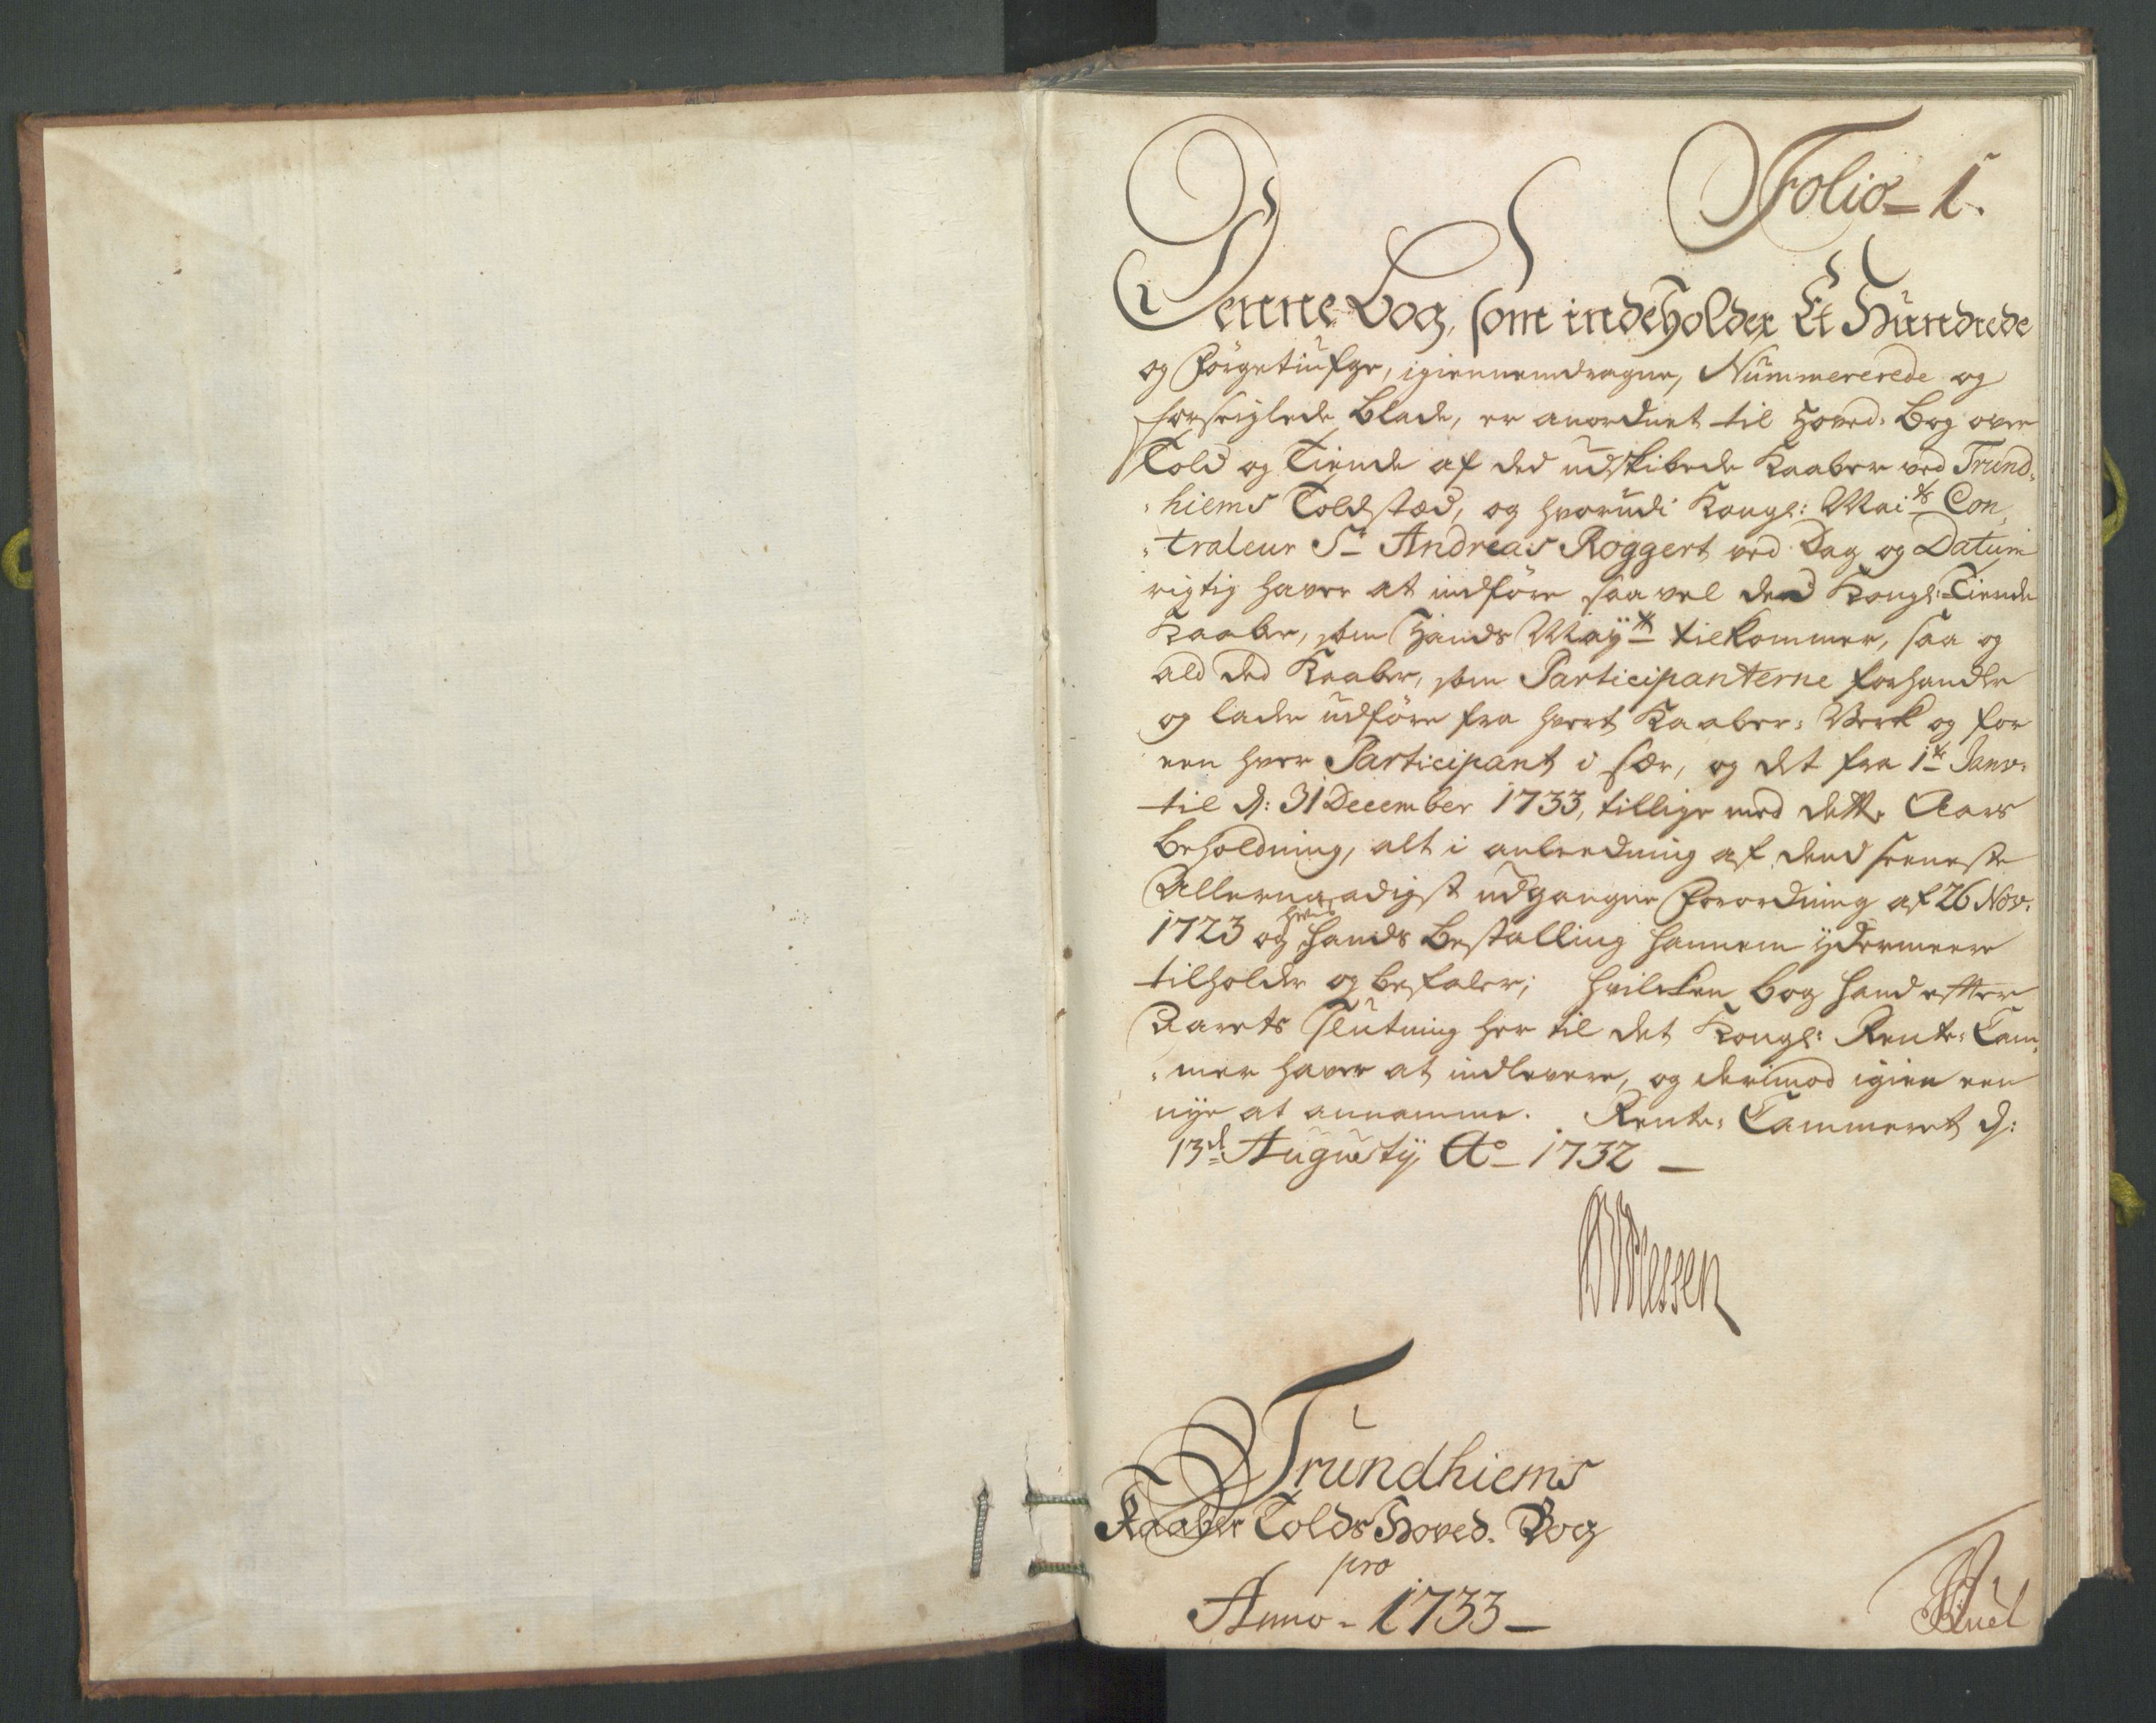 Folio - 1.
Denne Bog, som indeholder Et Hundrede
og Förgetiufyr, igiennemdragne, Nummererede og
forseiglede Blade, er anordnet til Hoved-Bog over
Told og Tiende af ded udskibede Kaaber ved Trund-
hiems Toldsted, og hvorudi Kongl: Mai.ts Con-
traleur Sr. Andreas Roggert ved Dag og Datum
rigtig haver at indföre saa vel den Kongl: Tiende
Kaaber, som Hands Mayts tilkommer, saa og
ald ded Kaaber, som Participanterne forhandle
og lade udföre fra hvert Kaaber-Verk og for
een hver Participant i sær, og det fra 1te Janv:
til d: 31 December 1733, tillige med dette Aars
Beholdning, alt i anleedning af dend seeneste
Allernaadigst udgangne Forordning af 26 Nov:
1723 og hvis hands Bestalling hannem ydermeere
tilholder og befaler; hvilcken Bog hand efter
Aarets Slutning her til det Kongl: Rente-Cam-
mer haver at indlevere, og derimod igien een
nye at annamme. Rente-Cammeret d:
13d Augusty Ao 1732
Trundhiems
Kaaber Tolds Hoved-Bog
pro
Anno - 1733